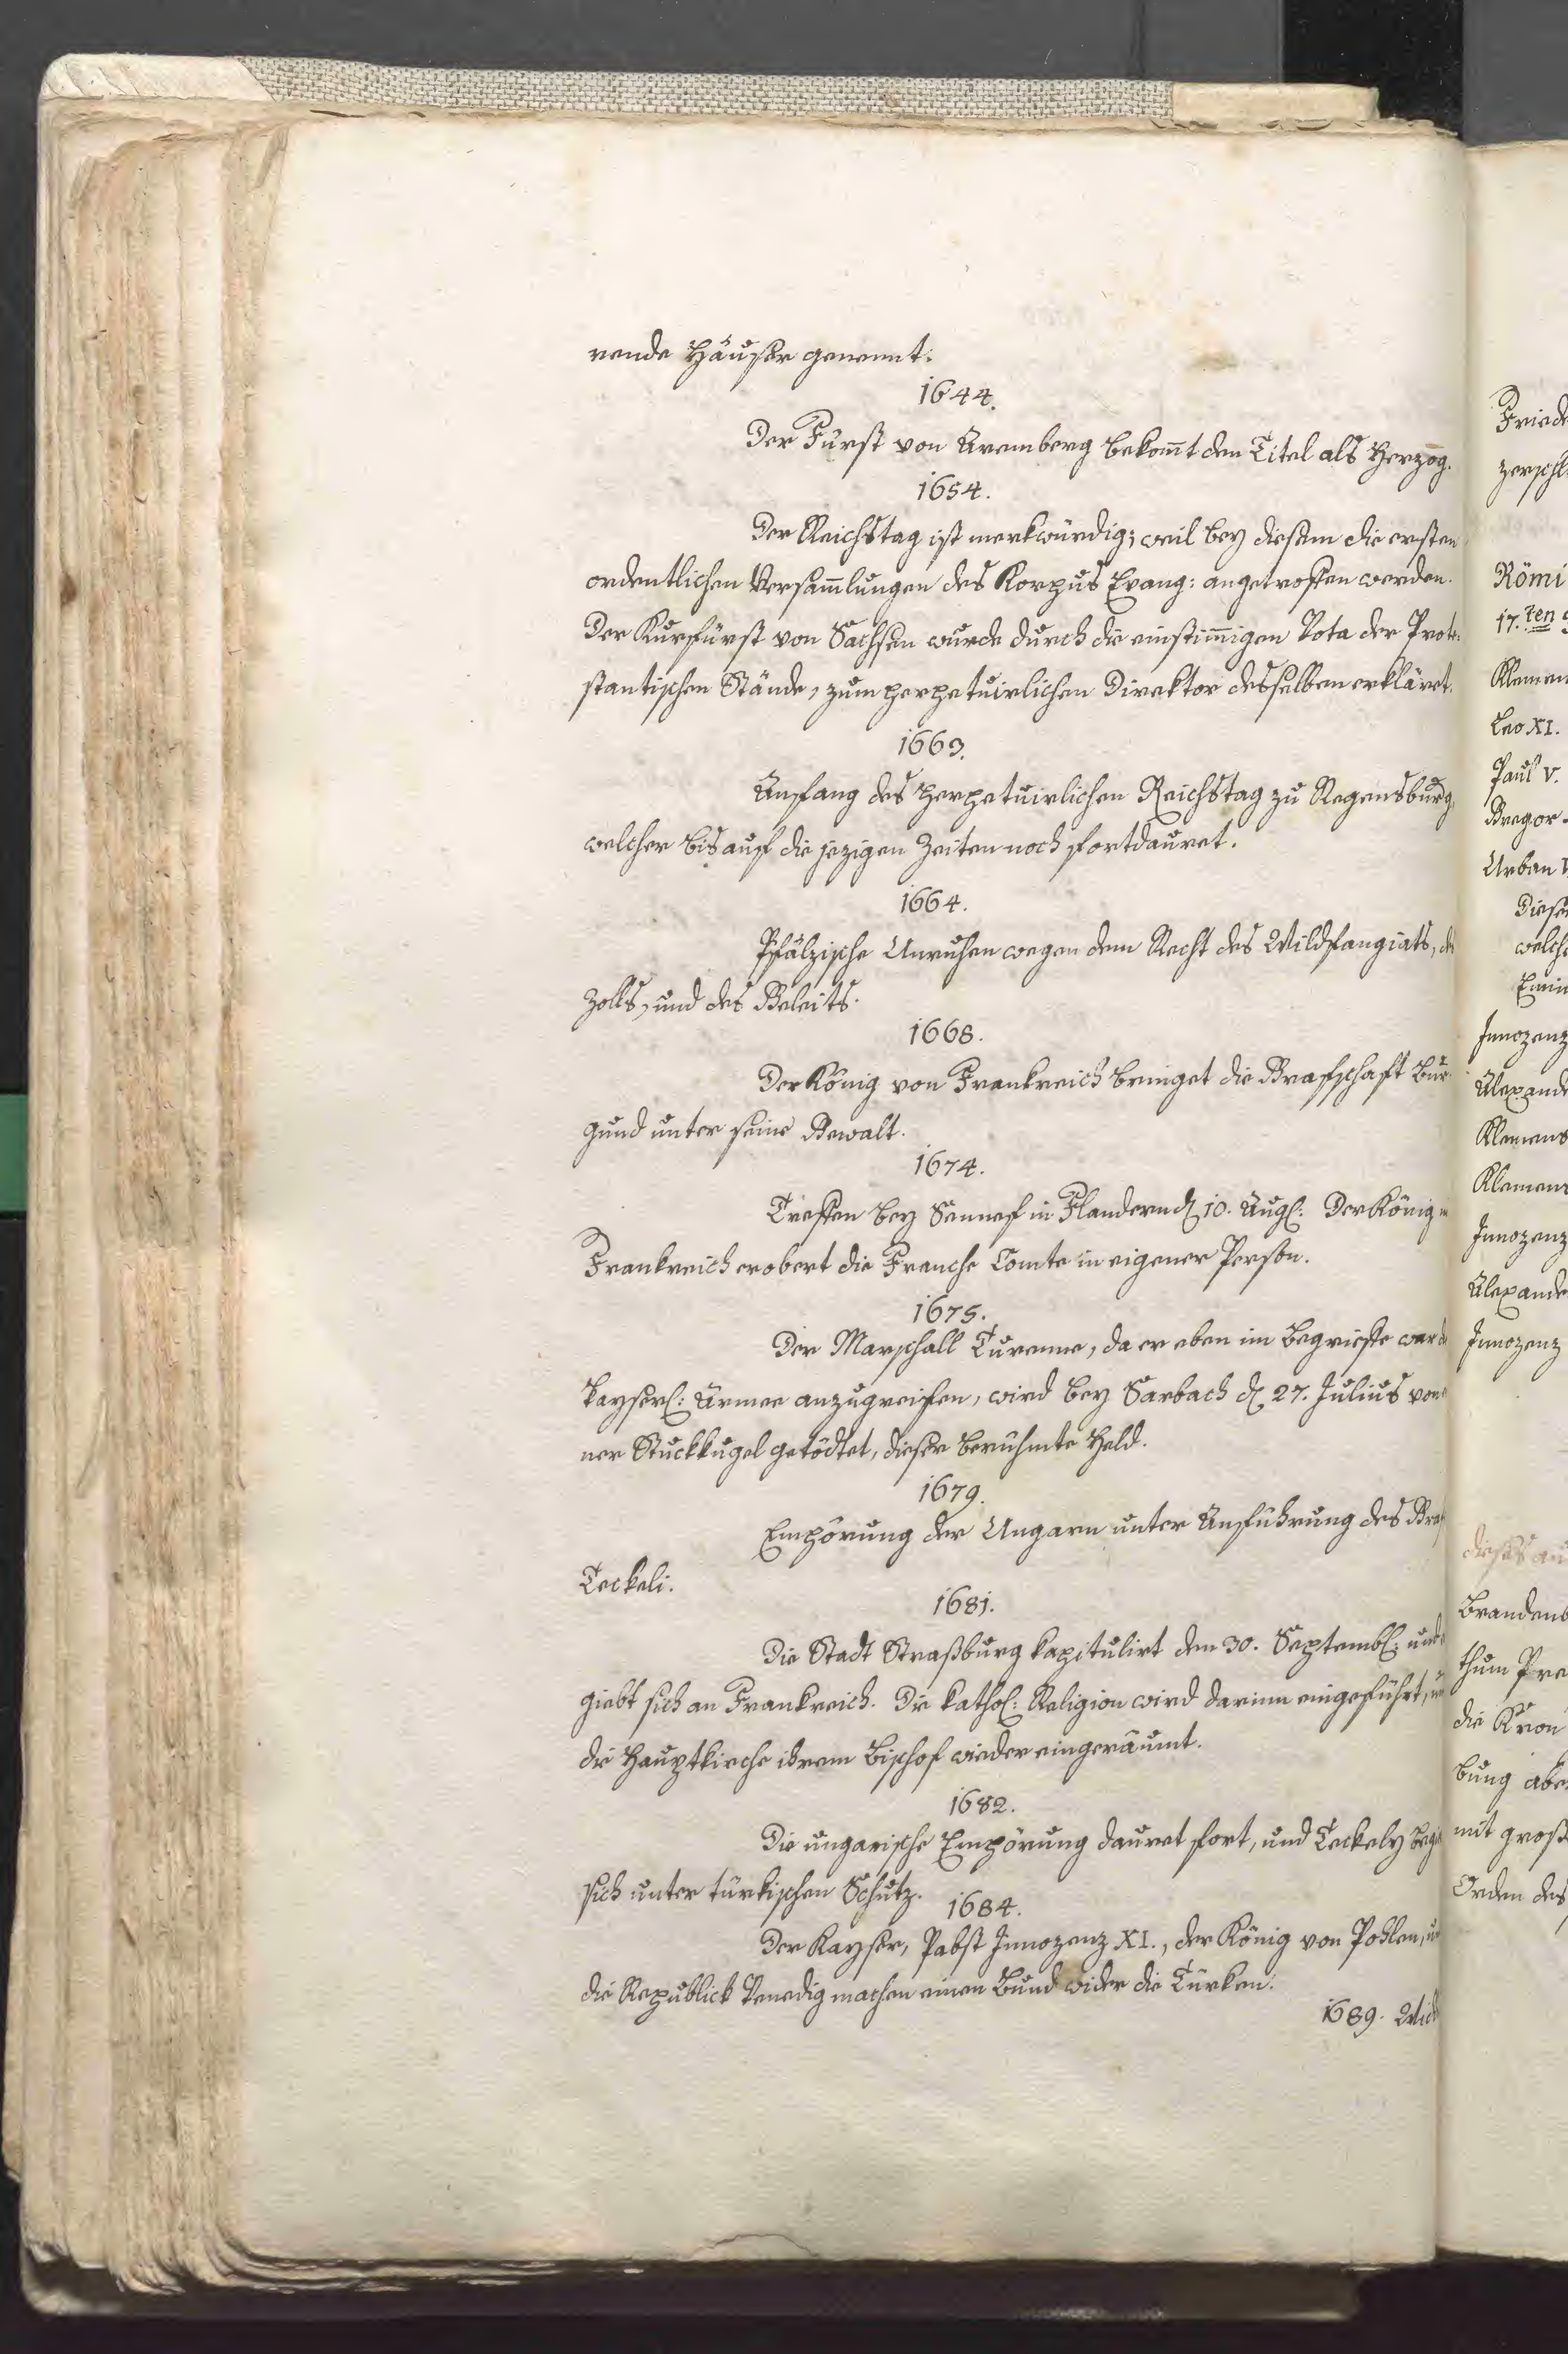 rende Häuser genennt.
1644.
Der Fürst von Aremberg bekom̄t den Titel als Herzog.
1654.
Der Reichstag ist merkwürdig; weil bey diesem die ersten
ordentlichen Versam̄lungen des Korpus Evang: angetroffen werden.
Der Kurfürst von Sachsen wurde durch die einstim̄igen Vota der Prote-
stantischen Stände, zum perpetuirlichen Direktor desselben erkläret.
1663.
Anfang des perpetuirlichen Reichstag zu Regensburg,
welcher bis auf die jezigen Zeiten noch fortdauret.
1664.
Pfälzische Unruhen wegen dem Recht des Wildfangiats, des
Zolls, und des Geleits.
1668.
Der König von Frankreich bringet die Grafschaft Bur-
gund unter seine Gewalt.
1674.
Treffen bey Sennef in Flandern d. 10. Aug: Der König
Frankreich erobert die Franche Comte in eigener Person.
1675.
Der Marschall Turenne, da er eben im Begrieffe war
kayserl: Armee anzugreifen, wird bey Sasbach d. 27. Julius von
ner Stuckkugel getödtet, dieser berühmte Held.
1679.
Empörung der Ungarn unter Anführung des Graf
Teckeli.
1681.
Die Stadt Straßburg kapitulirt den 30. Septemb: und
giebt sich an Frankreich. Die kathol: Religion wird darinn eingeführt,
die Hauptkirche ihrem Bischof wieder eingeräumt.
1682.
Die ungarische Empörung dauret fort, und Teckely begi
sich unter türkischen Schutz.
1684.
Der Kayser, Pabst Innozenz XI., der König von Pohlen, u
die Republick Venedig machen einen Bund wider die Türken.
1689. Wid
Friede
zerschl
Römi
17.ten
Klemen
Leo XI.
Paul V.
Gregor
Urban
Diese
welch
Emin
Innozenz
Alexande
Klemens
Klemens
Innozenz
Alexande
Innozenz
dieses au
Brandenb
thum Pre
die Kron
bung aber
mit groß
Orden des